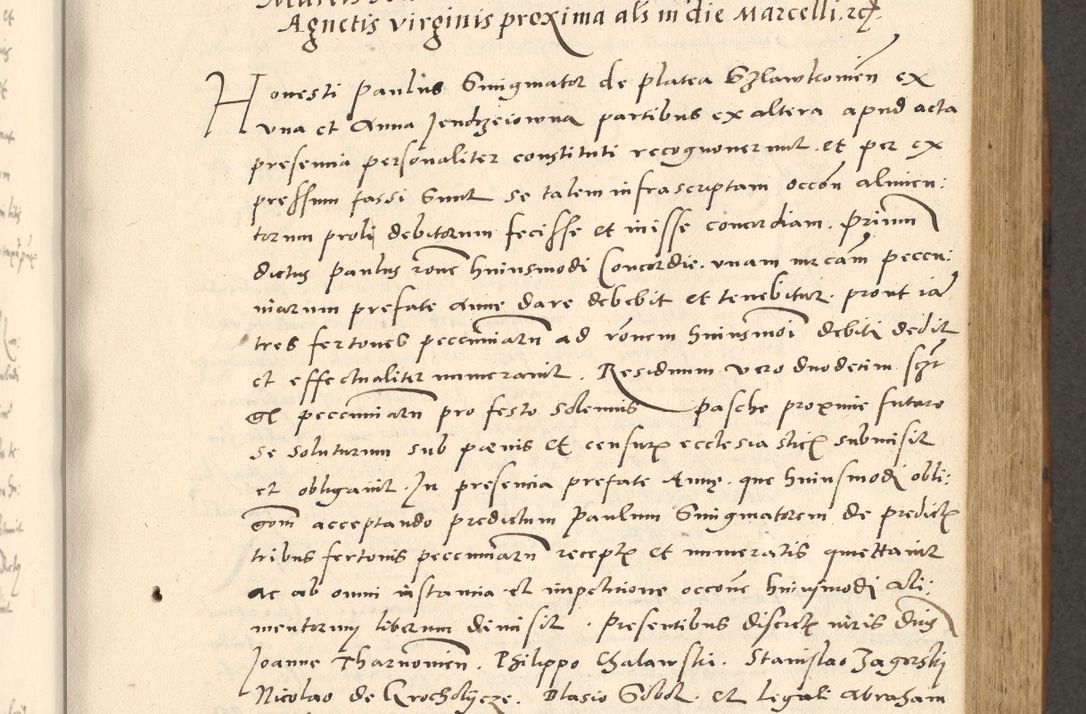 Agnetis virginis proxima als in die Marcelli. rc.
Honesti Paulus Smigmator de platea Szlawkowien ex
vna et Anna Jendrzeiowna partibus ex altera apud acta
presentia personaliter constituti recognouerunt. et per ex
pressum fassi sunt se talem infrascriptam occon alimen:
torum proli debitorum fecisse et inisse concordiam. Primum
dictus Paulus rone huiusmodi Concordie. vnam mrcam pecu:
niarum prefate Anne dare debebit et tenebitur. prout ia
tres fertones peccuniarum ad ronem huiusmoi debiti dedit
et effectualiter numerauit. Residuum vero duodecim scz
gl peccuniarum pro festo solemnis Pasche proxime futuro
se soluturum sub pænis et censuris ecclesiasticis submisit
et obligauit. In presencia prefate Anne. que huiusmodi obli:
gom acceptando predictum Paulum Smigmatorem de predictis
tribus fertonis peccuniarum receptis et numeratis quiettauit
ac ab omni instantia et impetitione occone huiusmodi ali:
mentorum liberum dimisit. Presentibus discretis viris dnis
Joanne Tharnowien. Philippo Chalawski. Stanislao Zagorski
Nicolao de Krocholycze. Blasio Sobol. et legali Abraham